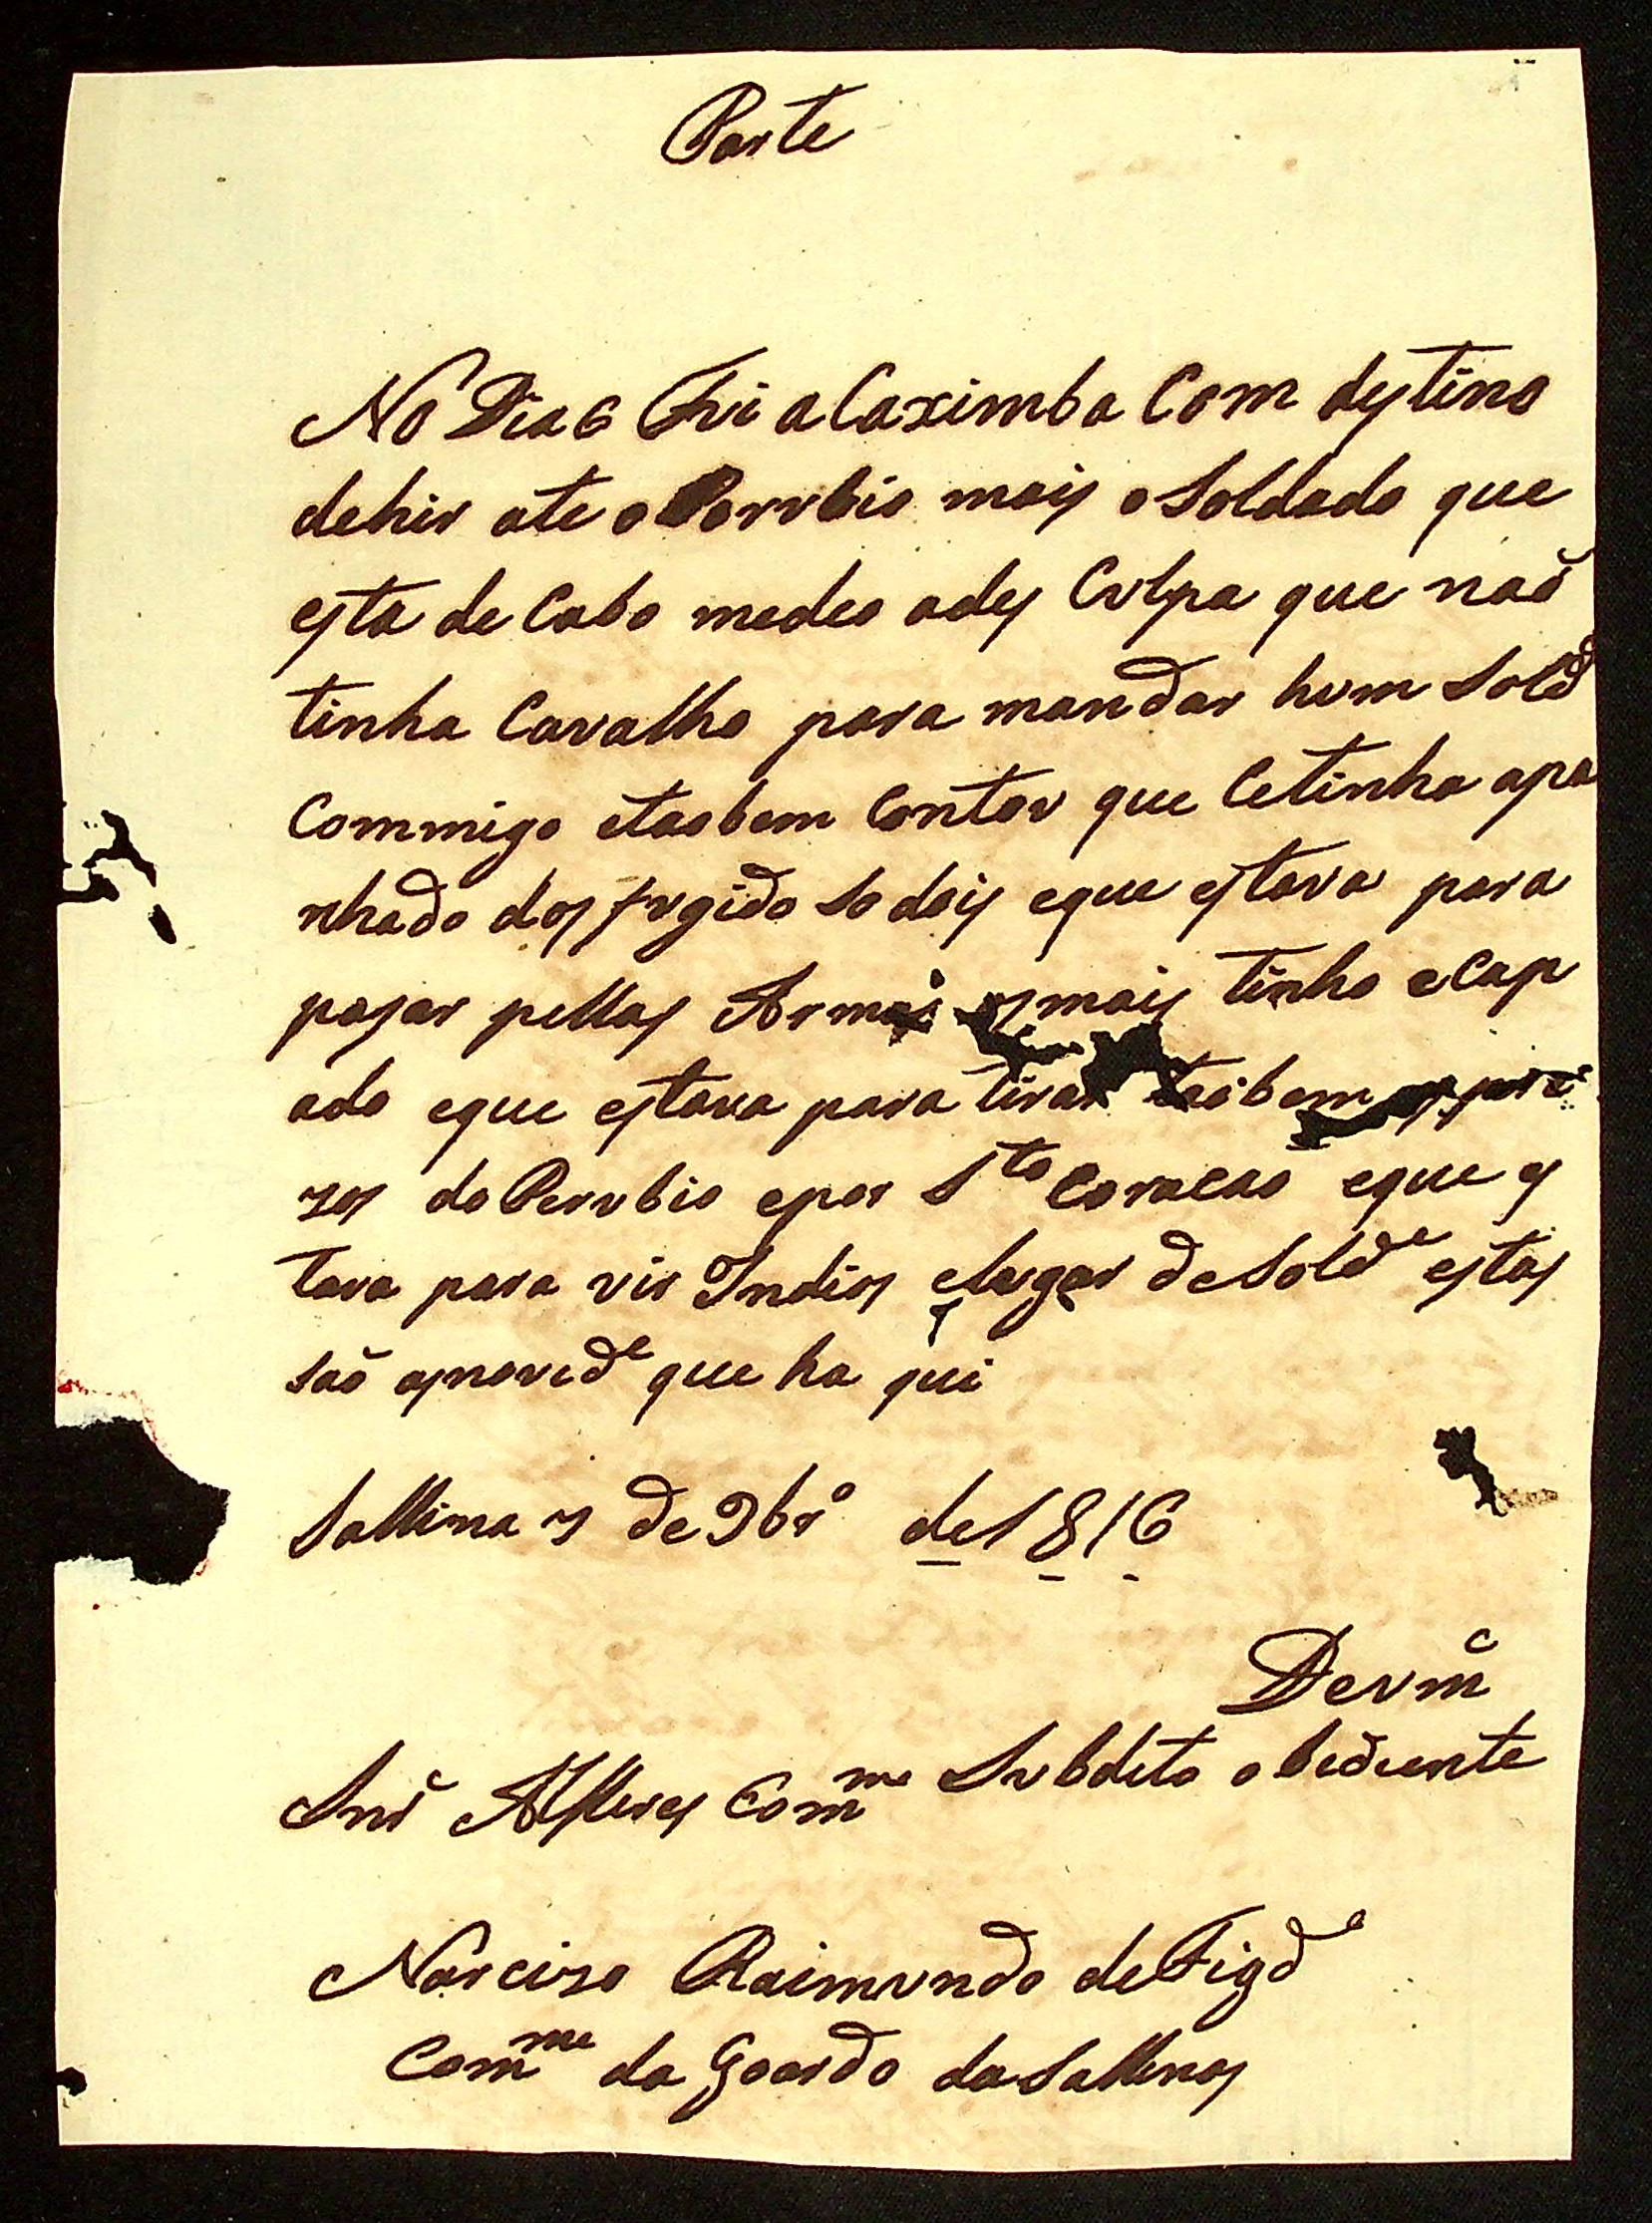 Parte
No Dia 6 Fui a Caximba Com destino
dehir ate o Porrobio mais o Soldado que
esta de Cabo medeo ades Culpa que naõ
tinha Cavalho para mandar hum Sold.
Commigo etaobem Contou que Cetinha apa
nhado dos fugido So dois eque estava para
pasar pellas Armas os mais tinha escap
ado eque estava para tirar taõbem os pre
zos do Perubio epor Sta Coracaõ eque es
tava para vir Indios elugar deSold.e estas
saõ asnovid.e que ha qui
Sallina 7 de 9br.o de 1816
DeVm.ce
Snr Alferes Com.me Subdito obediente
Narcizo Raimundo deFigd.o
Com.me da Goarda daSallinas